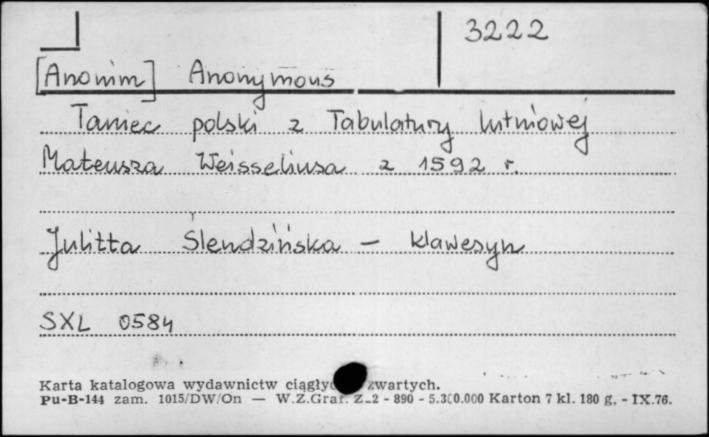 3222
[Anonim] Anonymous
Taniec polski z Tabulatury lutniowej
Mateusza Weisseliusa z 1592 r.
Julitta Ślendzińska – klawesyn
SXL 0584
Karta katalogowa wydawnictw ciągły zwartych.
Pu-B-144 zam. 1015/DW/On — W.Z.Graf. Z-2 - 890 - 5.300.000 Karton 7 kl. 180 g. - IX.76.